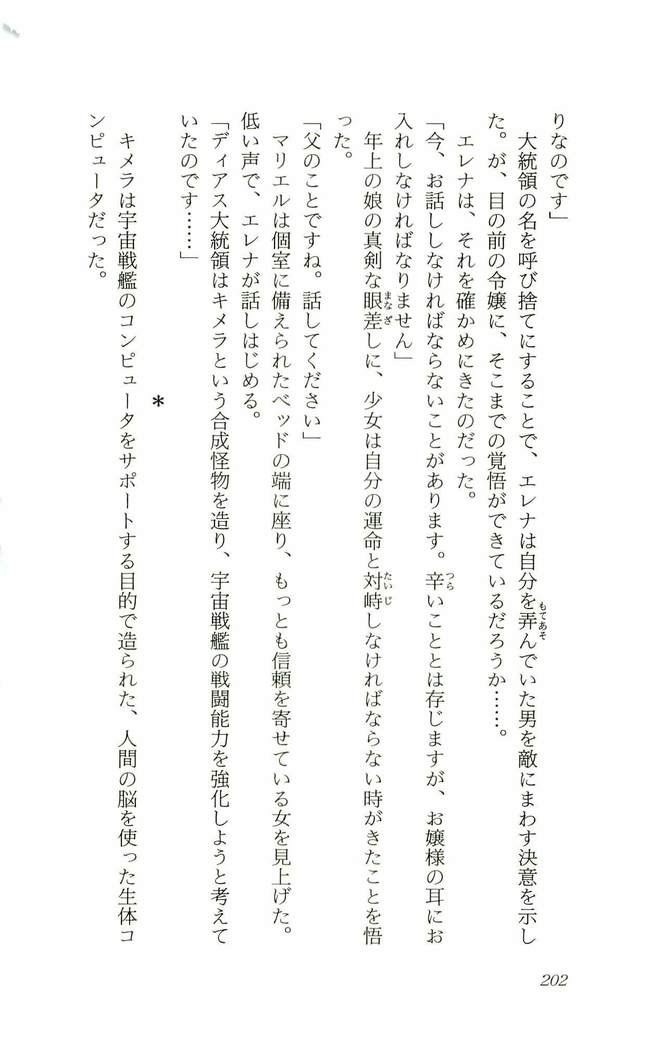 りなのです」
大統領の名を呼び捨てにすることで、エレナは自分を弄んでいた男を敵にまわす決意を示し
た。が、目の前の令嬢に、そこまでの覚悟ができているだろうか……。
エレナは、それを確かめにきたのだった。
「今、お話ししなければならないことがあります。辛いこととは存じますが、お嬢様の耳にお
入れしなければなりません」
年上の娘の真剣な眼差しに、少女は自分の運命と対峙しなければならない時がきたことを悟
った。
「父のことですね。話してください」
マリエルは個室に備えられたベッドの端に座り、もっとも信頼を寄せている女を見上げた。
低い声で、エレナが話しはじめる。
「ディアス大統領はキメラという合成怪物を造り、宇宙戦艦の戦闘能力を強化しようと考えて
いたのです……」
*
キメラは宇宙戦艦のコンピュータをサポートする目的で造られた、人間の脳を使った生体コ
ンピュータだった。
もてあそ
つら
まなざ
たいじ
202